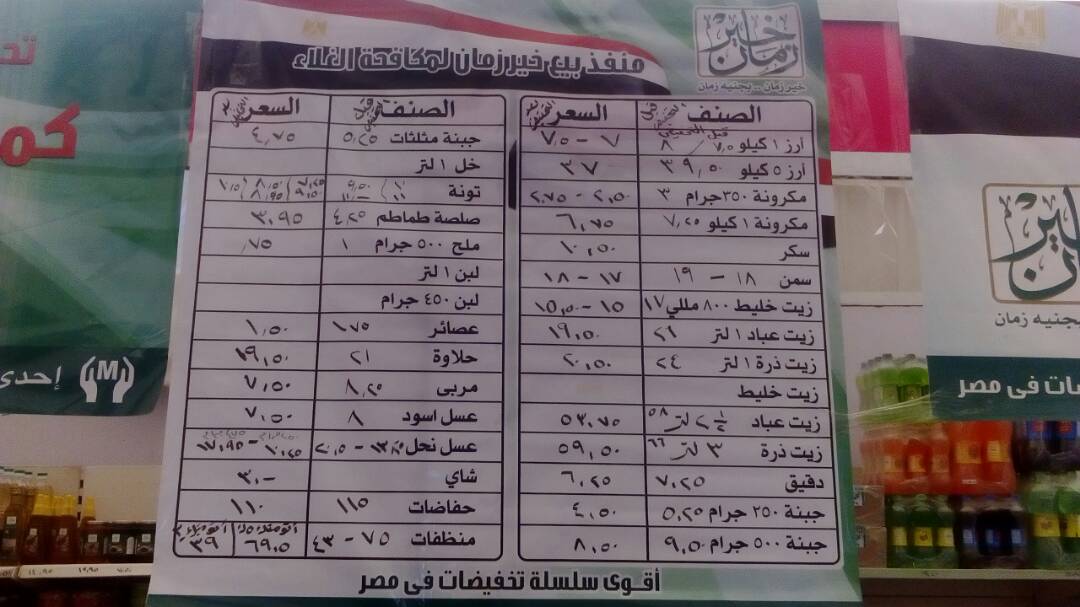 منفذ بيع خير زمان لمكافحة الغلاء
خير زمان
خير زمان .. بجنيه زمان
الصنف قبل التخفيض السعر بعد التخفيض
قبل التخفيض
أرز ١ كيلو ٧,٥ / ٨ ٧ - ٧,٥
أرز ٥ كيلو ٣٩,٥٠ ٣٧
مكرونة ٣٥٠ جرام ٣ ٢,٥٠ - ٢,٧٥
مكرونة ١ كيلو ٧,٢٥ ٦,٧٥
سكر ١٠,٥٠
سمن ١٨ - ١٩ ١٧ - ١٨
زيت خليط ٨٠٠ مللي ١٧ ١٥ - ١٥,٥٠
زيت عباد ١ لتر ٢١ ١٩,٥٠
زيت ذرة ١ لتر ٢٤ ٢٠,٥٠
زيت خليط
زيت عباد ٢ ١/٢ لتر ٥٨ ٥٣,٧٥
زيت ذرة ٣ لتر ٦٦ ٥٩,٥٠
دقيق ٧,٢٥ ٦,٢٥
جبنة ٢٥٠ جرام ٥,٢٥ ٤,٥٠
جبنة ٥٠٠ جرام ٩,٥٠ ٨,٥٠
الصنف قبل التخفيض السعر بعد التخفيض
جبنة مثلثات ٥,٢٥ ٤,٧٥
خل ١ لتر
تونة
صلصة طماطم ٤,٢٥ ٣,٩٥
ملح ٥٠٠ جرام ١ ,٧٥
لبن ١ لتر
لبن ٤٥٠ جرام
عصائر ١,٧٥ ١,٥٠
حلاوة ٢١ ١٩,٥٠
مربى ٨,٢٥ ٧,٥٠
عسل اسود ٨ ٧,٥٠
عسل نحل ١٧,٩٥
شاي ٣,-
حفاضات ١١٥ ١١٠
منظفات ٧٥ - ٤٣ ٦٩,٥ ٣٩
أقوى سلسلة تخفيضات فى مصر
كم
M إحدى
بجنيه زمان
ضات فى مصر